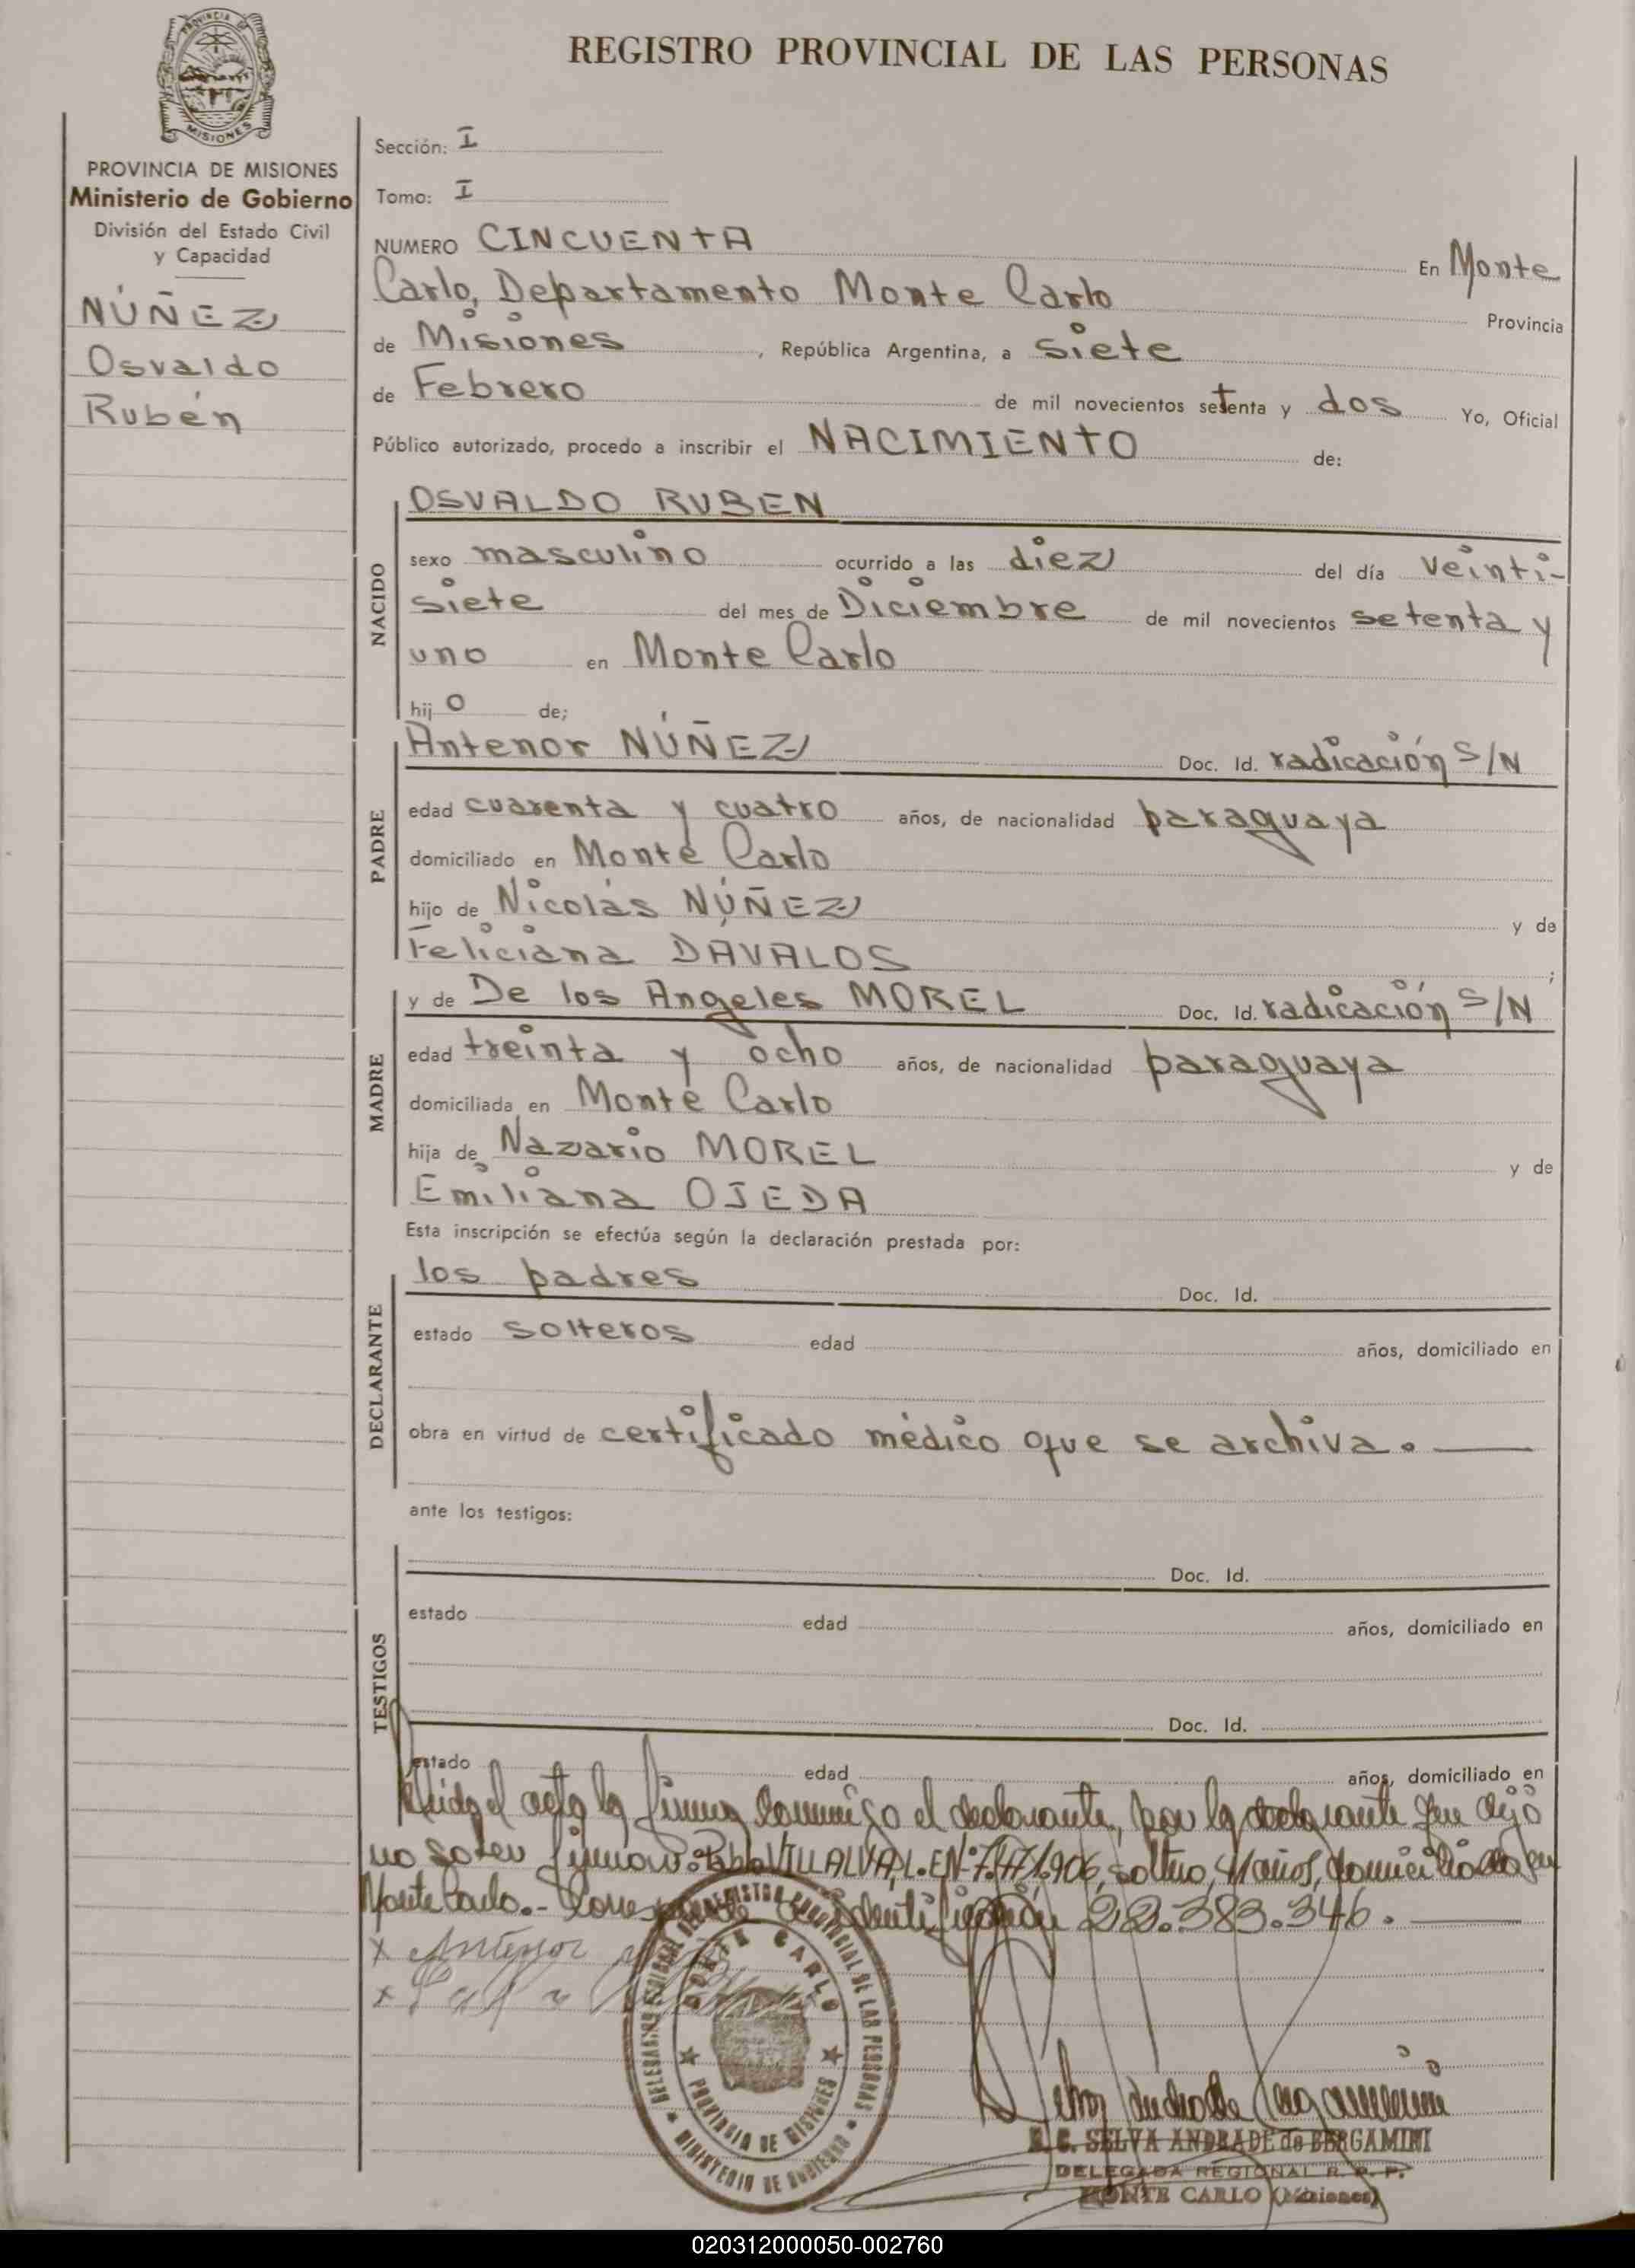 REGISTRO PROVINCIAL DE LAS PERSONAS
PROVINCIA DE
MISIONES
PROVINCIA DE MISIONES
Ministerio de Gobierno
División del Estado Civil
y Capacidad
NÚÑEZ
Osvaldo
Rubén
Sección: I
Tomo: I
NUMERO CINCUENTA En Monte
Carlo, Departamento Monte Carlo Provincia
de Misiones, República Argentina, a siete
de Febrero de mil novecientos setenta y dos Yo, Oficial
Público autorizado, procedo a inscribir el NACIMIENTO de:
NACIDO
OSVALDO RUBEN
sexo masculino ocurrido a las diez del día veinti-
siete del mes de Diciembre de mil novecientos setenta y
uno en Monte Carlo
hijo de;
PADRE
Antenor NÚÑEZ Doc. Id. radicación S/N
edad cuarenta y cuatro años, de nacionalidad paraguaya
domiciliado en Monte Carlo
hijo de Nicolás NÚÑEZ y de
Feliciana DAVALOS ;
MADRE
y de De los Angeles MOREL Doc. Id. radicación S/N
edad treinta y ocho años, de nacionalidad paraguaya
domiciliada en Monte Carlo
hija de Nazario MOREL y de
Emiliana OJEDA
Esta inscripción se efectúa según la declaración prestada por:
DECLARANTE
los padres Doc. Id.
estado solteros edad años, domiciliado en
obra en virtud de certificado médico que se archiva.
ante los testigos:
TESTIGOS
Doc. Id.
estado edad años, domiciliado en
Doc. Id.
estado edad años, domiciliado en
el acta la firma conmigo el declarante, por la declarante que dijo
no saber firmar: Pablo VILLALVA, L.E.Nº 7.471.906, soltero, 41 años, domiciliado en
Monte Carlo.- Corresponde Identificación 22.383.346.
x Antenor
x
DELEGACION REGIONAL DEL REGISTRO PROVINCIAL DE LAS PERSONAS
MONTE CARLO
PROVINCIA DE MISIONES
MINISTERIO DE GOBIERNO
Selva Andrade de Bergamini
SELVA ANDRADE de BERGAMINI
DELEGADA REGIONAL R. P. P.
MONTE CARLO (Misiones)
020312000050-002760